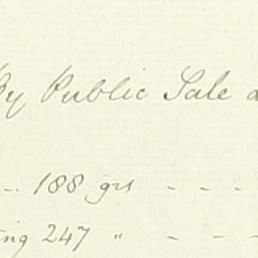 By Public Sale a
188 grs - - -
ing 247 " - -